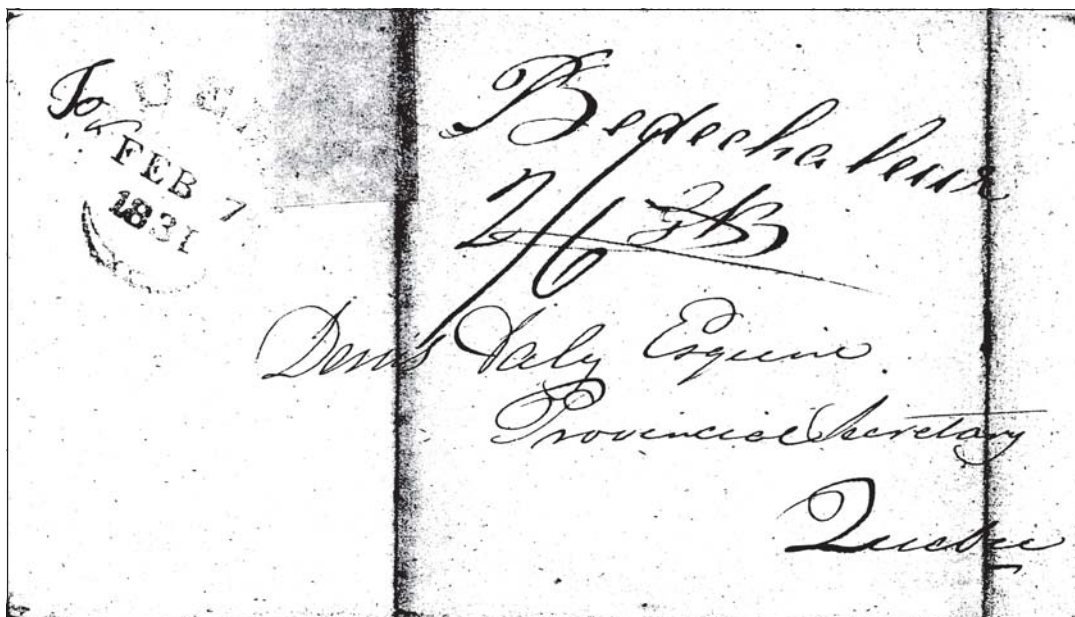 To
FEB 7
1831
Bedechaleur
2/6
Denis Daly Esquire
Provincial Secretary
Quebec